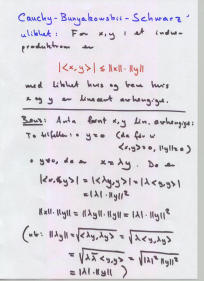 Cauchy-Bunyakowskii-Schwarz'
ulikhet: For x, y i et indre-
produktrom er
|<x,y>| ≤ ||x||·||y||
med likhet hvis og bare hvis
x og y er lineært avhengige.
Bevis: Anta først x, y lin. avhengige:
To tilfeller: ○ y=0 (da får vi
<x,y>=0, ||y||=0)
○ y≠0, da er x=λy. Da er
|<x,y>| = |<λy,y>| = |λ<y,y>|
= |λ|·||y||²
||x||·||y|| = ||λy||·||y|| = |λ|·||y||²
||λy|| = √<λy,λy> = √λ<y,λy>
= √λλ̄<y,y> = √|λ|²||y||²
= |λ|·||y|| )